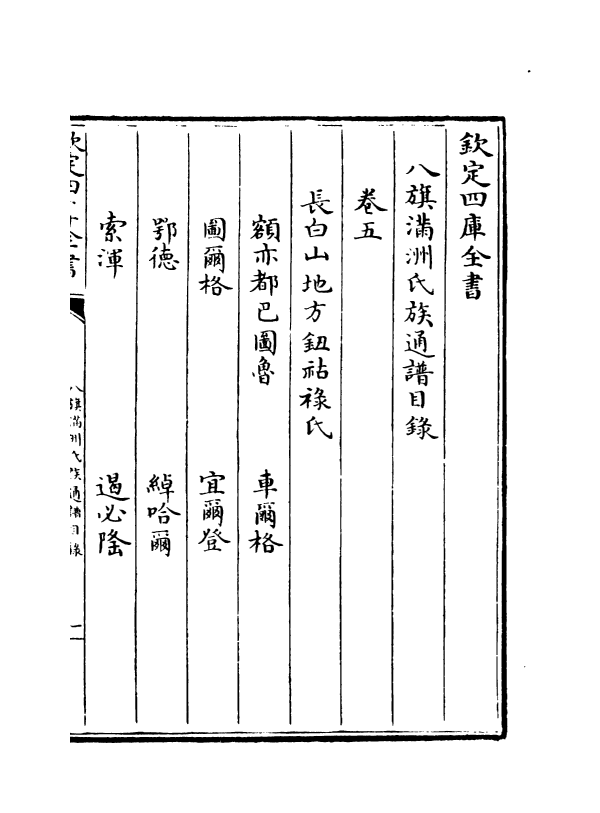 欽定四庫全書
八旗滿洲氏族通譜目錄
卷五
長白山地方鈕祜祿氏
額亦都巴圖魯　車爾格
圖爾格　宜爾登
鄂德　綽哈爾
索渾　遏必隆
欽定四庫全書
八旗滿洲氏族通譜目錄